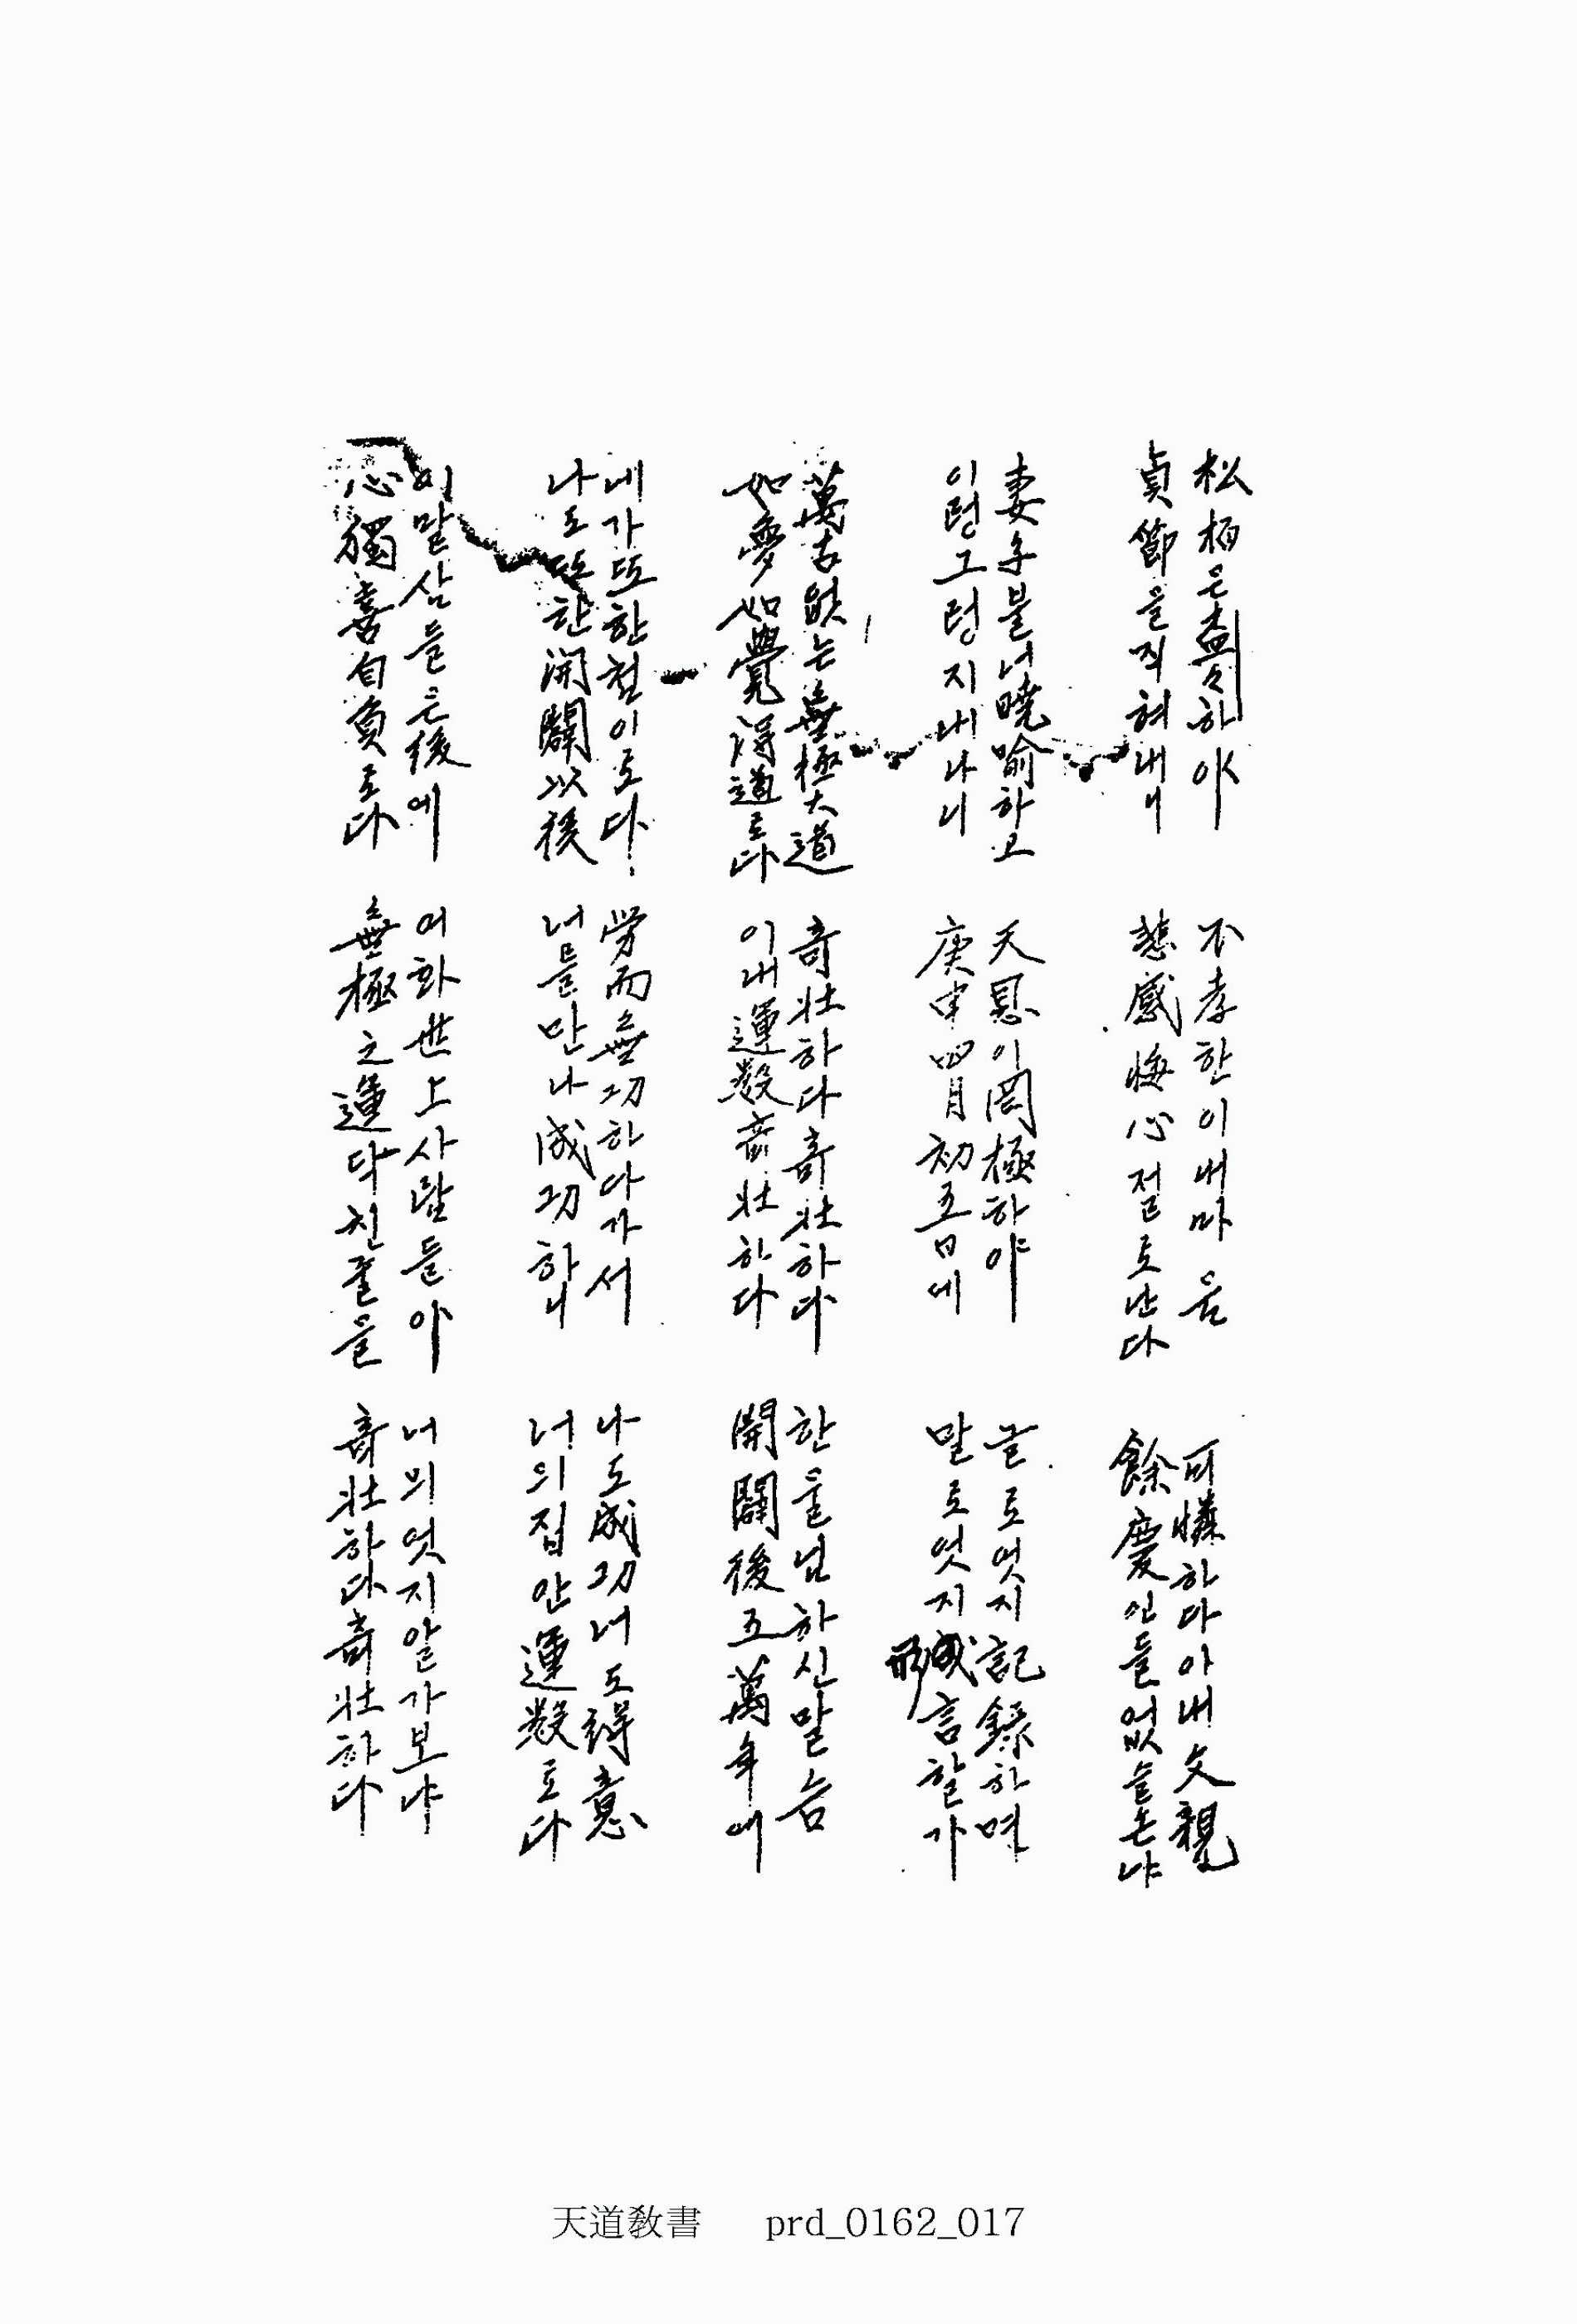 松柏은 하야
貞節을직혀내니
不孝한이내마음
悲感悔心절로난다
可憐하다아내父親
餘慶인들없슬손냐
妻子불너曉喩하고
이렁그렁지내나니
天恩이罔極하야
庚申四月初五日에
글로엇지記錄하며
말로엇지形言할가
萬古없는無極大道
如夢如覺得道로다
奇壯하다奇壯하다
이내運數奇壯하다
한울님하신말슴
開闢後五萬年에
네가또한첨이로다
나도또한開闢以後
勞而無功하다가서
너들만나成功하니
나도成功너도得意
너의집안運數로다
이말삼들은後에
心獨喜自負로다
어화世上사람들아
無極之運닥친줄을
너의엇지알가보냐
奇壯하다奇壯하다
天道敎書 prd_0162_017